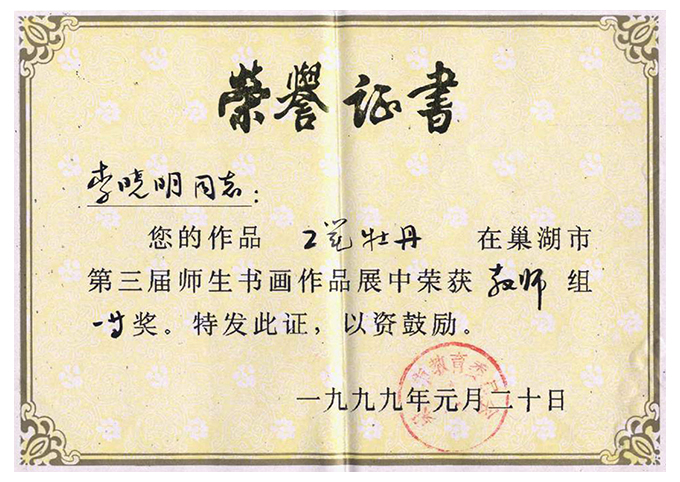 荣誉证书
李晓明同志:
您的作品 工笔牡丹 在巢湖市
第三届师生书画作品展中荣获 教师 组
一等奖。特发此证,以资鼓励。
教育委员
一九九九年元月二十日